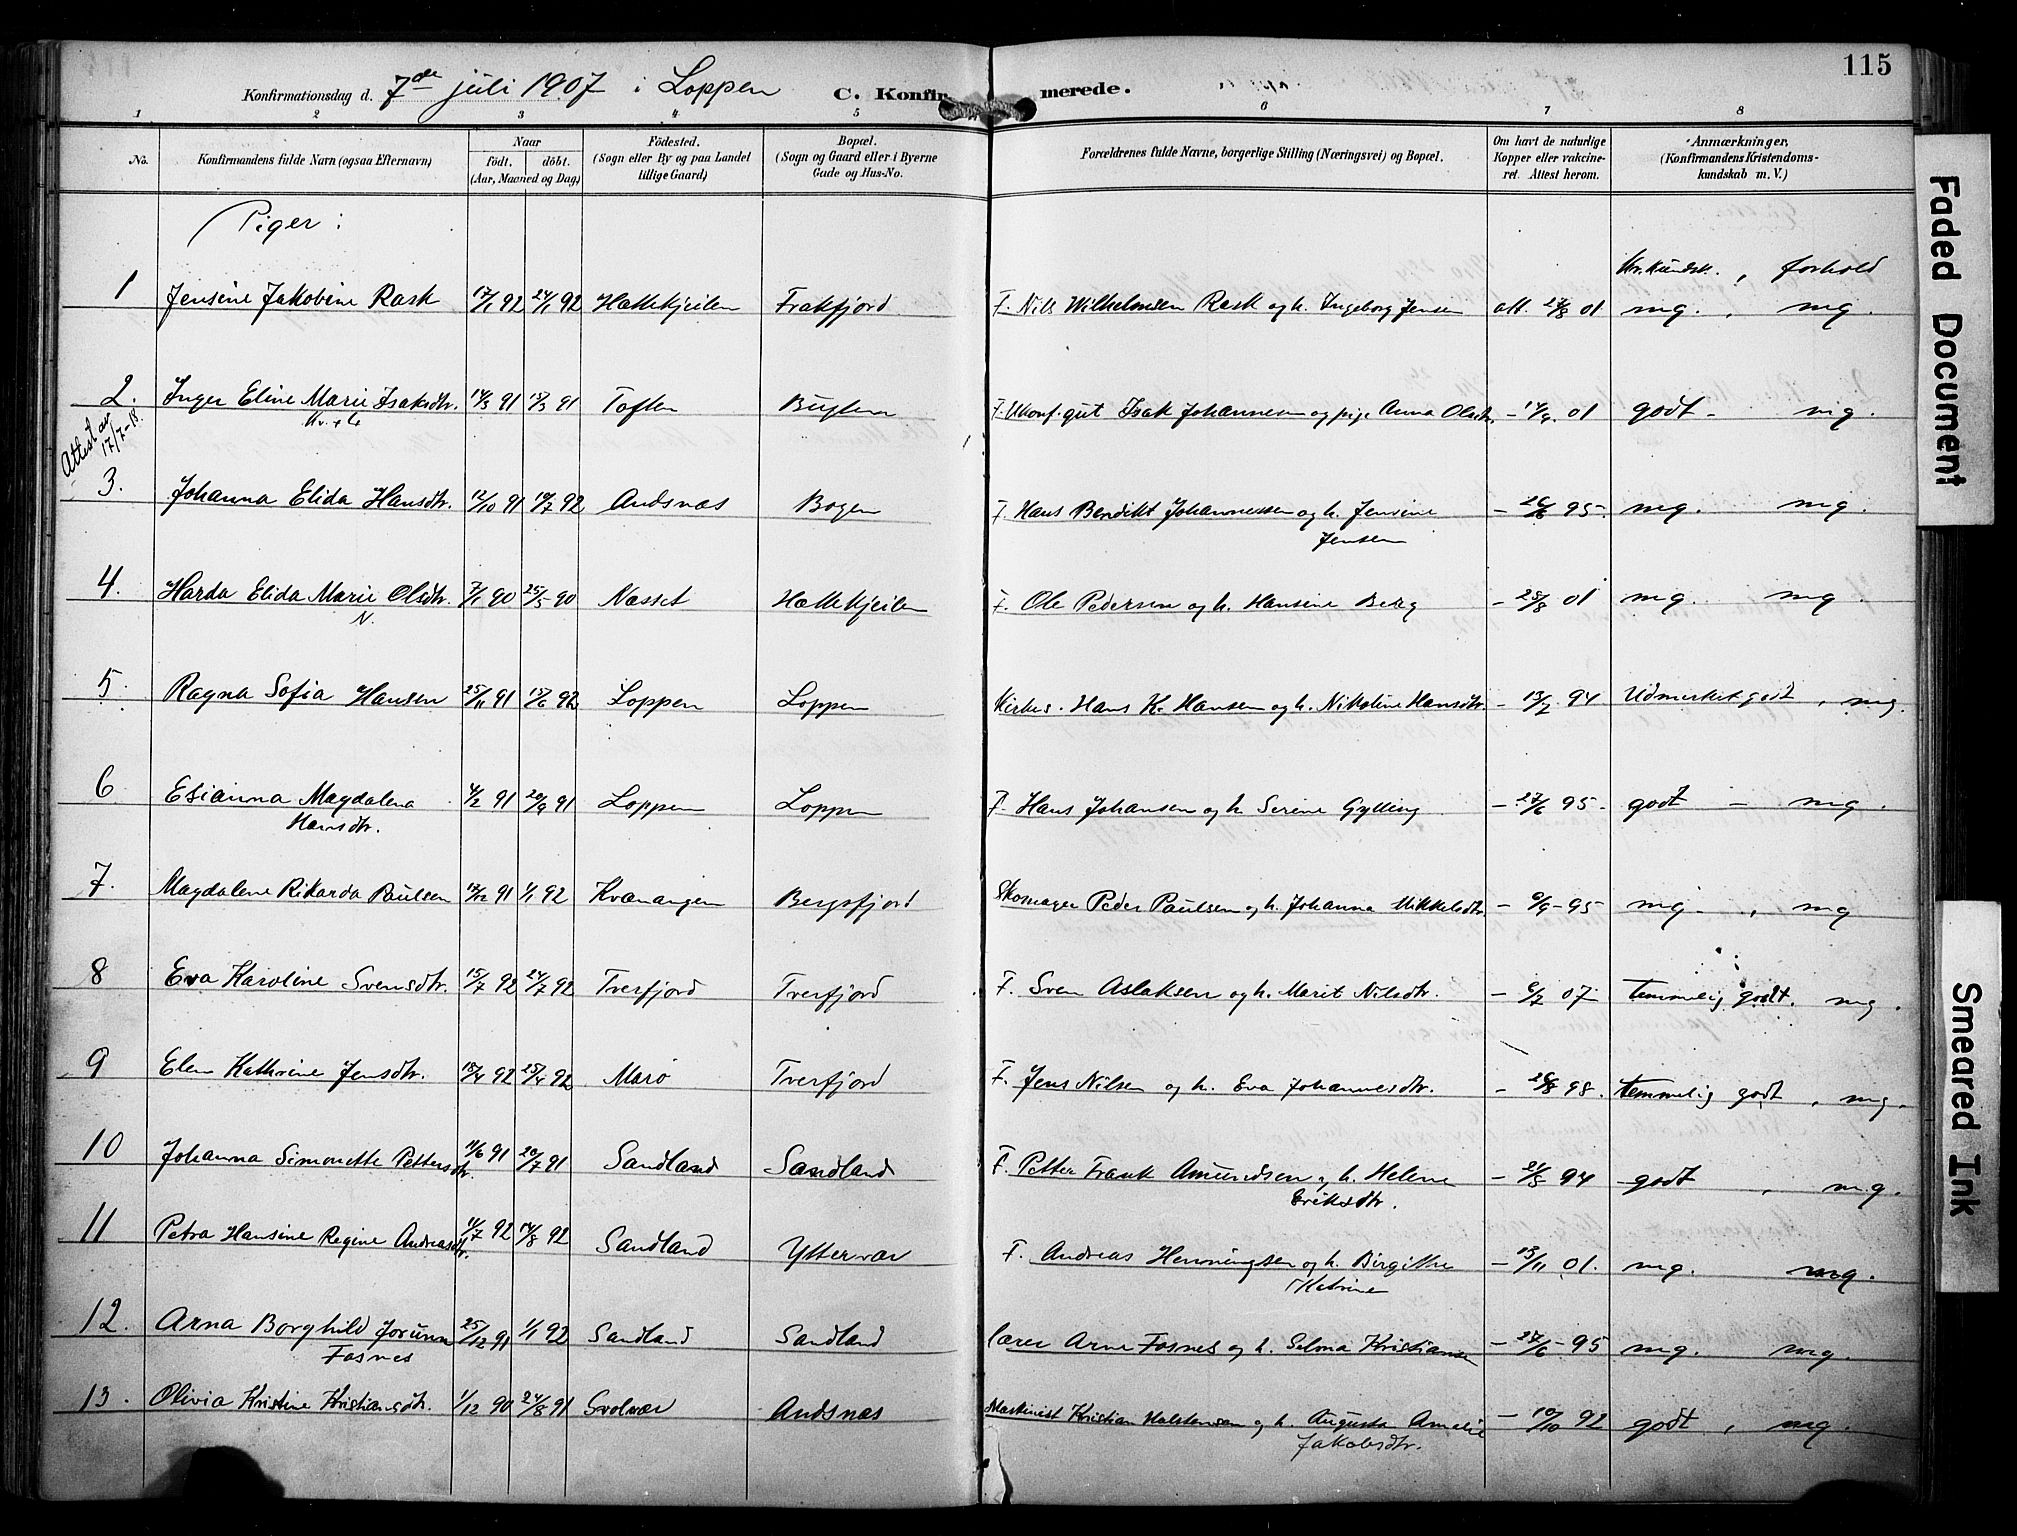 115
Konfirmationsdag d. 7de juli 1907 i Loppen C. Konfirmerede.
1 2 3 4 5 6 7 8
No. Konfirmandens fulde Navn (ogsaa Efternavn) Naar födt. döbt. (Aar, Maaned og Dag) Födested. (Sogn eller By og paa Landet tillige Gaard) Bopæl. (Sogn og Gaard eller i Byerne Gade og Hus-No. Forældrenes fulde Navne, borgerlige Stilling (Næringsvei) og Bopæl. Om havt de naturlige Kopper eller vakcineret. Attest herom. Anmærkninger. (Konfirmandens Kristendomskundskab m. V.)
Piger:
Kr. kundsk. , forhold
1 Jensine Jakobine Rask 17/1 92 24/1 92 Hattekjeilen Frakfjord F. Nils Wilhelmsen Rask og h. Ingeborg Jensen att. 27/8 01 mg. , mg.
2. Inger Eline Marie Isaksdtr. 14/3 91 17/3 91 Toften Buglen F. Ukonf. gut Isak Johannesen og pige Anna Olsdtr. - 14/9. 01 godt - mg.
Attest av 17/7-18.
3. Johanna Elida Hansdtr. 12/10 91 19/7 92 Andsnæs Bogen F. Hans Bendikt Johannessen og h. Jensine - 26/6 95. mg. mg.
Jensen
4. Harda Elida Marie Olsdtr. 7/1 90 25/5 90 Næsset Hattekjeilen F. Ole Pedersen og h. Hansine Berg - 28/8 01 mg. - mg.
N.
5. Ragna Sofia Hansen 25/11 91 15/6 92 Loppen Loppen Kirkes. Hans K. Hansen og h. Nikoline Hansdtr. - 13/7 94 Udmerket godt , mg.
6 Esianna Magdalena 4/2 91 20/9 91 Loppen Loppen F. Hans Johansen og h. Serine Gylling - 27/6 95. godt - mg.
Hansdtr.
7. Magdalene Rikarda Paulsen 17/12 91 1/1 92 Kvænangen Bergsfjord Skomager Peder Paulsen og h. Johanna Mikkelsdtr. - 6/9 - 95 mg. , mg
8 Eva Karoline Svensdtr. 15/7 92 24/7 92 Tverfjord Tverfjord F. Sven Aslaksen og h. Marit Nilsdtr. - 6/7 07 temmelig godt. mg.
9 Elen Kathrine Jensdtr. 15/4 92 25/4 92 Marø Tverfjord F. Jens Nilsen og h. Eva Johannesdtr. - 26/8 98. temmelig godt , mg.
10 Johanna Simonette Pettersdtr. 11/6 91 20/7 91 Sandland Sandland F. Petter Frank Amundsen og h. Helene - 21/5 94 godt , mg.
Eriksdtr.
11 Petra Hansine Regine Andreasdtr. 11/7 92 14/8 92 Sandland Yttervær F. Andreas Henningsen og h. Birgitte - 13/11 01. mg. mg.
Katrine
12. Arna Borghild Jorunn 25/12 91 1/1 92 Sandland Sandland lærer Arne Fosnes og h. Selma Kristiansen - 27/6 - 95 mg. mg.
Fosnes
13. Olivia Kristine Kristiansdtr. 1/12 90 24/8 91 Svolvær Andsnæs Maskinist Kristian Halstensen og h. Augusta Amelie - 10/10 92 godt , mg.
Jakobsdtr.
Faded Document
Smeared Ink